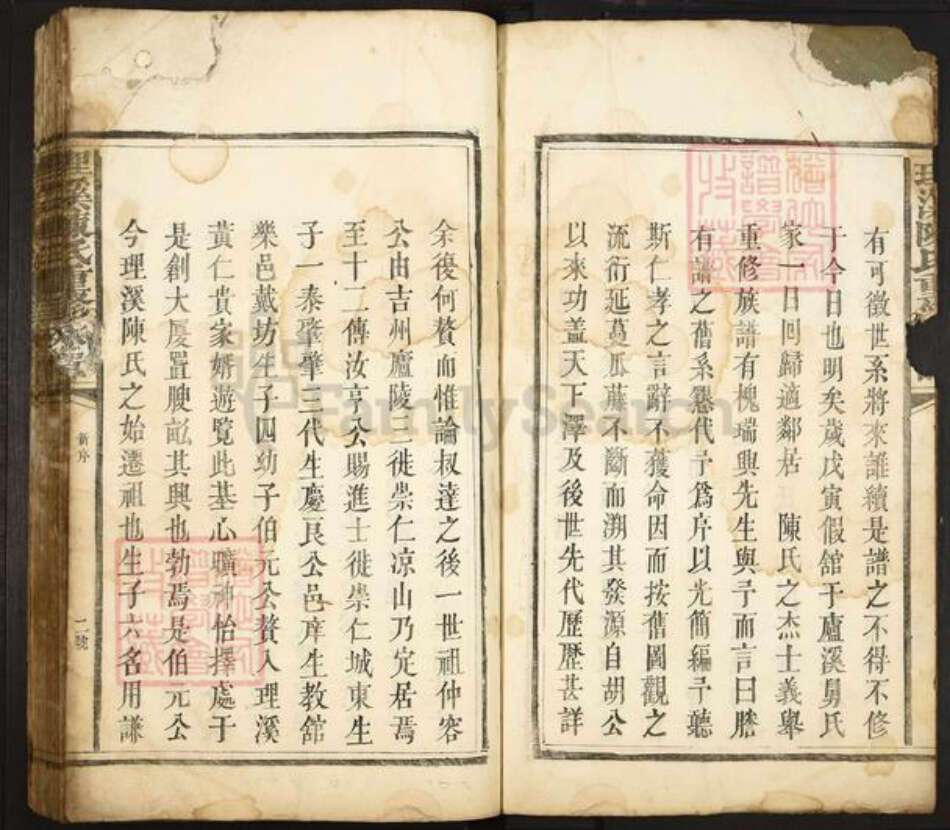 有可徵世系將來誰續是譜之不得不修
于今日也明矣歲戊寅假舘于廬溪舅氏
家一日回歸適鄰居 陳氏之杰士義舉
重修族譜有槐瑞與先生與予而言曰膽
有譜之舊系懇代予爲序以光簡編予聽
斯仁孝之言辭不獲命因而按舊圖觀之
流衍延蔓瓜瓞不斷而溯其發源自胡公
以來功盖天下澤及後世先代歷歷甚詳
余復何贅而惟論叔達之後一世祖仲容
公由吉州廬陵三徙崇仁凉山乃定居焉
至十二傳汝亨公賜進士徙崇仁城東生
子一泰肇肇三代生慶良公邑庠生教舘
樂邑戴坊生子四幼子伯元公贅入理溪
黃仁貴家婿遊覧此基心曠神怡擇處于
是創大厦置腴畝其興也勃焉是伯元公
今理溪陳氏之始遷祖也生子六名用謙
理溪陳氏重修
新序
二號
FamilySearch